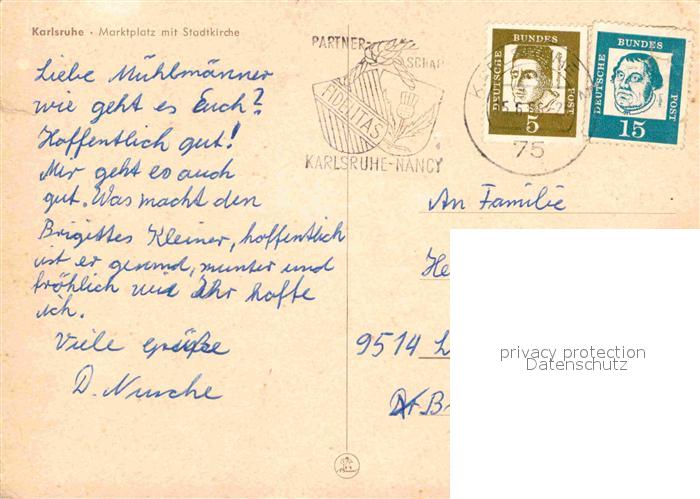 Karlsruhe · Marktplatz mit Stadtkirche
Liebe Mühlmänner
wie geht es Euch?
Hoffentlich gut!
Mir geht es auch
gut. Was macht den
Brigittes Kleiner, hoffentlich
ist er gesund, munter und
fröhlich wie Ihr hoffe
ich.
Viele Grüße
D. Nusche
PARTNER-
SCHAF
FIDELITAS
KARLSRUHE-NANCY
75
DEUTSCHE
BUNDES
POST
5
DEUTSCHE
BUNDES
POST
15
An Familie
He
9514 L
Br
privacy protection
Datenschutz